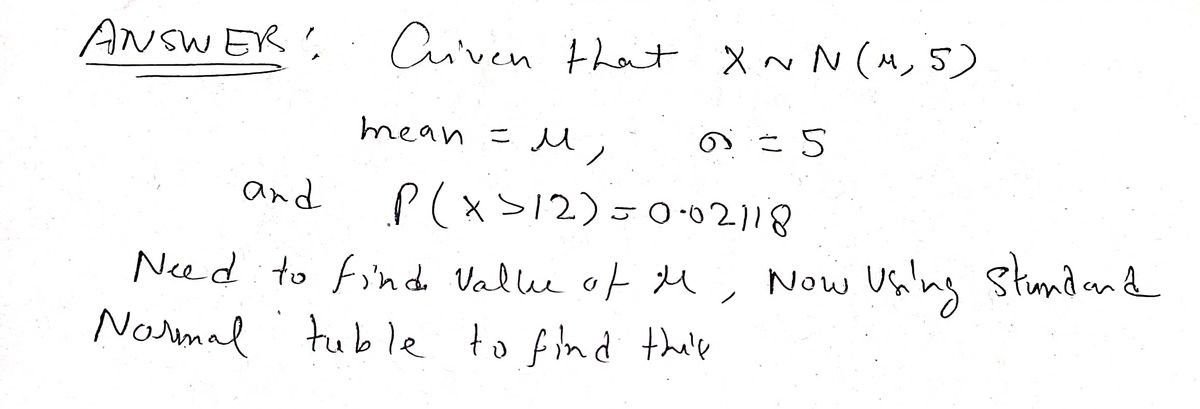 ANSWER: Given that X ~ N(μ, 5)
mean = μ, σ = 5
and P(X>12)=0.02118
Need to find Value of μ, Now Using Standard
Normal table to find this